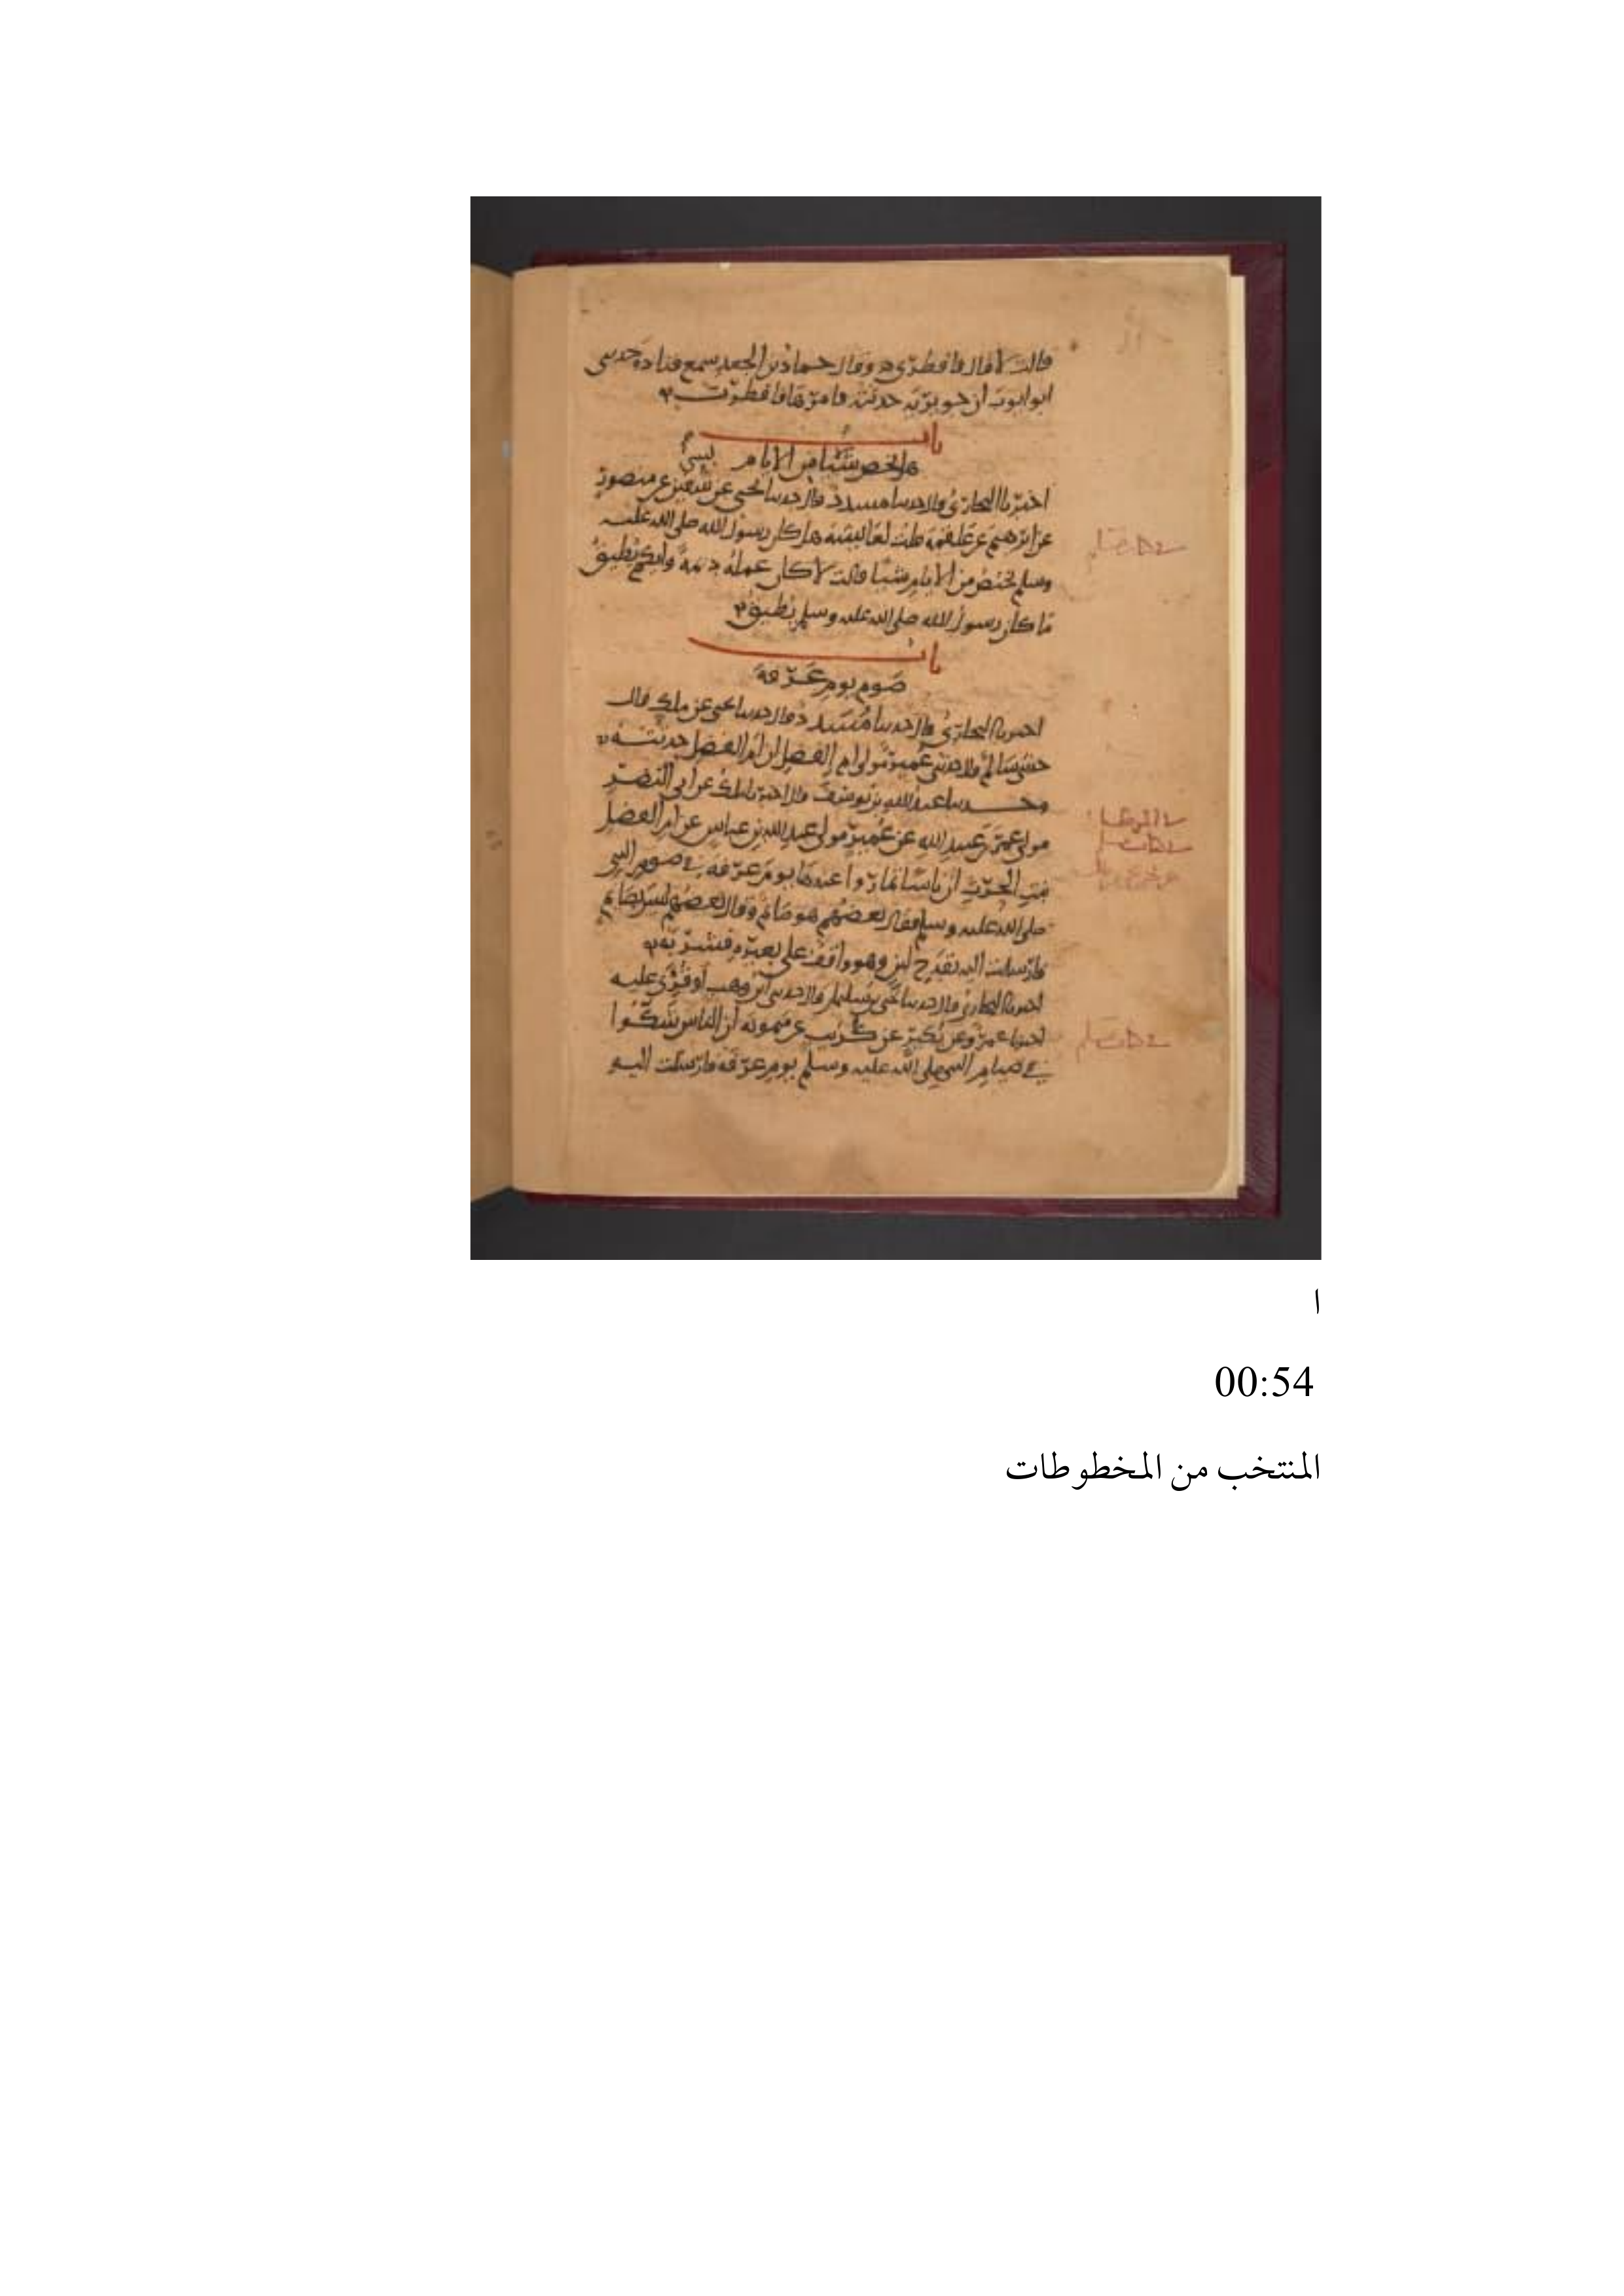 قالت لا قال فافطري وقال حماد بن الجعد سمع قتادة حدثني
ابو ايوب ان جويرية حدثته فامرها فافطرت
باب
هل يخص شيئا من الايام
اخبرنا البخاري قال حدثنا مسدد قال حدثنا يحيى عن سفين عن منصور
عن ابرهيم عن علقمة قلت لعائشة هل كان رسول الله صلى الله عليه
وسلم يختص من الايام شيئا قالت لا كان عمله ديمة وايكم يطيق
ما كان رسول الله صلى الله عليه وسلم يطيق
باب
صوم يوم عرفة
اخبرنا البخاري قال حدثنا مسدد قال حدثنا يحيى عن ملك قال
حدثني سالم قال حدثني عمير مولى ام الفضل ان ام الفضل حدثته
وحدثنا عبد الله بن يوسف قال اخبرنا ملك عن ابي النضر
مولى عمر بن عبيد الله عن عمير مولى عبد الله بن عباس عن ام الفضل
بنت الحرث ان ناسا تماروا عندها يوم عرفة في صوم النبي
صلى الله عليه وسلم فقال بعضهم هو صائم وقال بعضهم ليس بصائم
فارسلت اليه بقدح لبن وهو واقف على بعيره فشربه
اخبرنا البخاري قال حدثنا يحيى بن سليمان قال حدثني ابن وهب او قرئ عليه
اخبرنا عمرو عن بكير عن كريب عن ميمونة ان الناس شكوا
في صيام النبي صلى الله عليه وسلم يوم عرفة فارسلت اليه
ا
00:54
المنتخب من المخطوطات